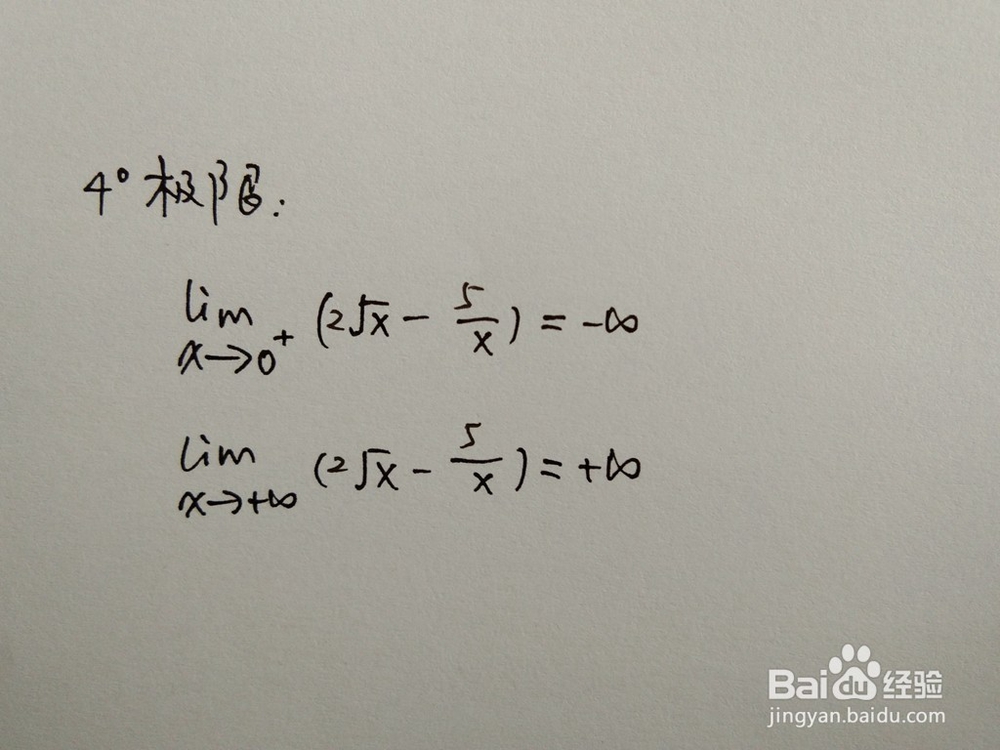 4° 极限.
lim x→0⁺ (2√x - 5/x) = -∞
lim x→+∞ (2√x - 5/x) = +∞
Baidu经验
jingyan.baidu.com